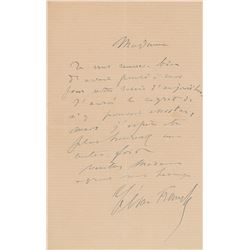 Madame
Je vous remercie bien
d'avoir pensé à moi
pour votre soirée d'aujourd'hui
J'aurai le regret de
n'y pouvoir assister,
mais j'espère être
plus heureux une
autre fois
Veuillez Madame